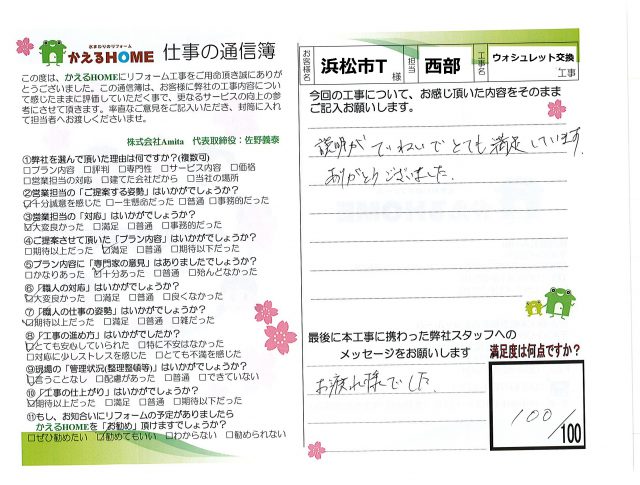 水まわりのリフォーム
かえるHOME 仕事の通信簿
この度は、かえるHOMEにリフォーム工事をご用命頂き誠にありが
とうございました。この通信簿は、お客様に弊社の工事内容につい
て感じたままに評価していただく事で、更なるサービスの向上の参
考にさせて頂きます。率直なご意見をご記入いただき、封筒に入れ
て担当者へお渡しくださいませ。
株式会社Amita 代表取締役:佐野義泰
①弊社を選んで頂いた理由は何ですか?(複数可)
□プラン内容 □評判 □専門性 □サービス内容 □価格
□営業担当の対応 □建てた会社だから □当社の場所
②営業担当の「ご提案する姿勢」はいかがでしょうか?
☑十分誠意を感じた □一生懸命だった □普通 □事務的だった
③営業担当の「対応」はいかがでしょうか?
☑大変良かった □満足 □普通 □事務的だった
④ご提案させて頂いた「プラン内容」はいかがでしょうか?
□期待以上だった ☑満足 □普通 □期待以下だった
⑤プラン内容に「専門家の意見」はありましたでしょうか?
□かなりあった ☑十分あった □普通 □殆んどなかった
⑥「職人の対応」はいかがでしょうか?
☑大変良かった □満足 □普通 □良くなかった
⑦「職人の仕事の姿勢」はいかがでしょうか?
☑期待以上だった □満足 □普通 □雑だった
⑧「工事の進め方」はいかがでしたか?
☑とても安心していられた □特に不安はなかった
□対応に少しストレスを感じた □とても不満を感じた
⑨現場の「管理状況(整理整頓等)」はいかがでしょうか?
☑言うことなし □配慮があった □普通 □できていない
⑩「工事の仕上がり」はいかがでしょうか?
☑期待以上だった □満足 □普通 □期待以下だった
⑪もし、お知合いにリフォームの予定がありましたら
かえるHOMEを「お勧め」頂けますでしょうか?
□ぜひ勧めたい ☑勧めてもいい □わからない □勧められない
お客様名 浜松市T 様 担当 西部 工事名 ウォシュレット交換 工事
今回の工事について、お感じ頂いた内容をそのまま
ご記入お願いします。
説明がていねいでとても満足しています。
ありがとうございました。
最後に本工事に携わった弊社スタッフへの
メッセージをお願いします
満足度は何点ですか?
お疲れ様でした。
100/100